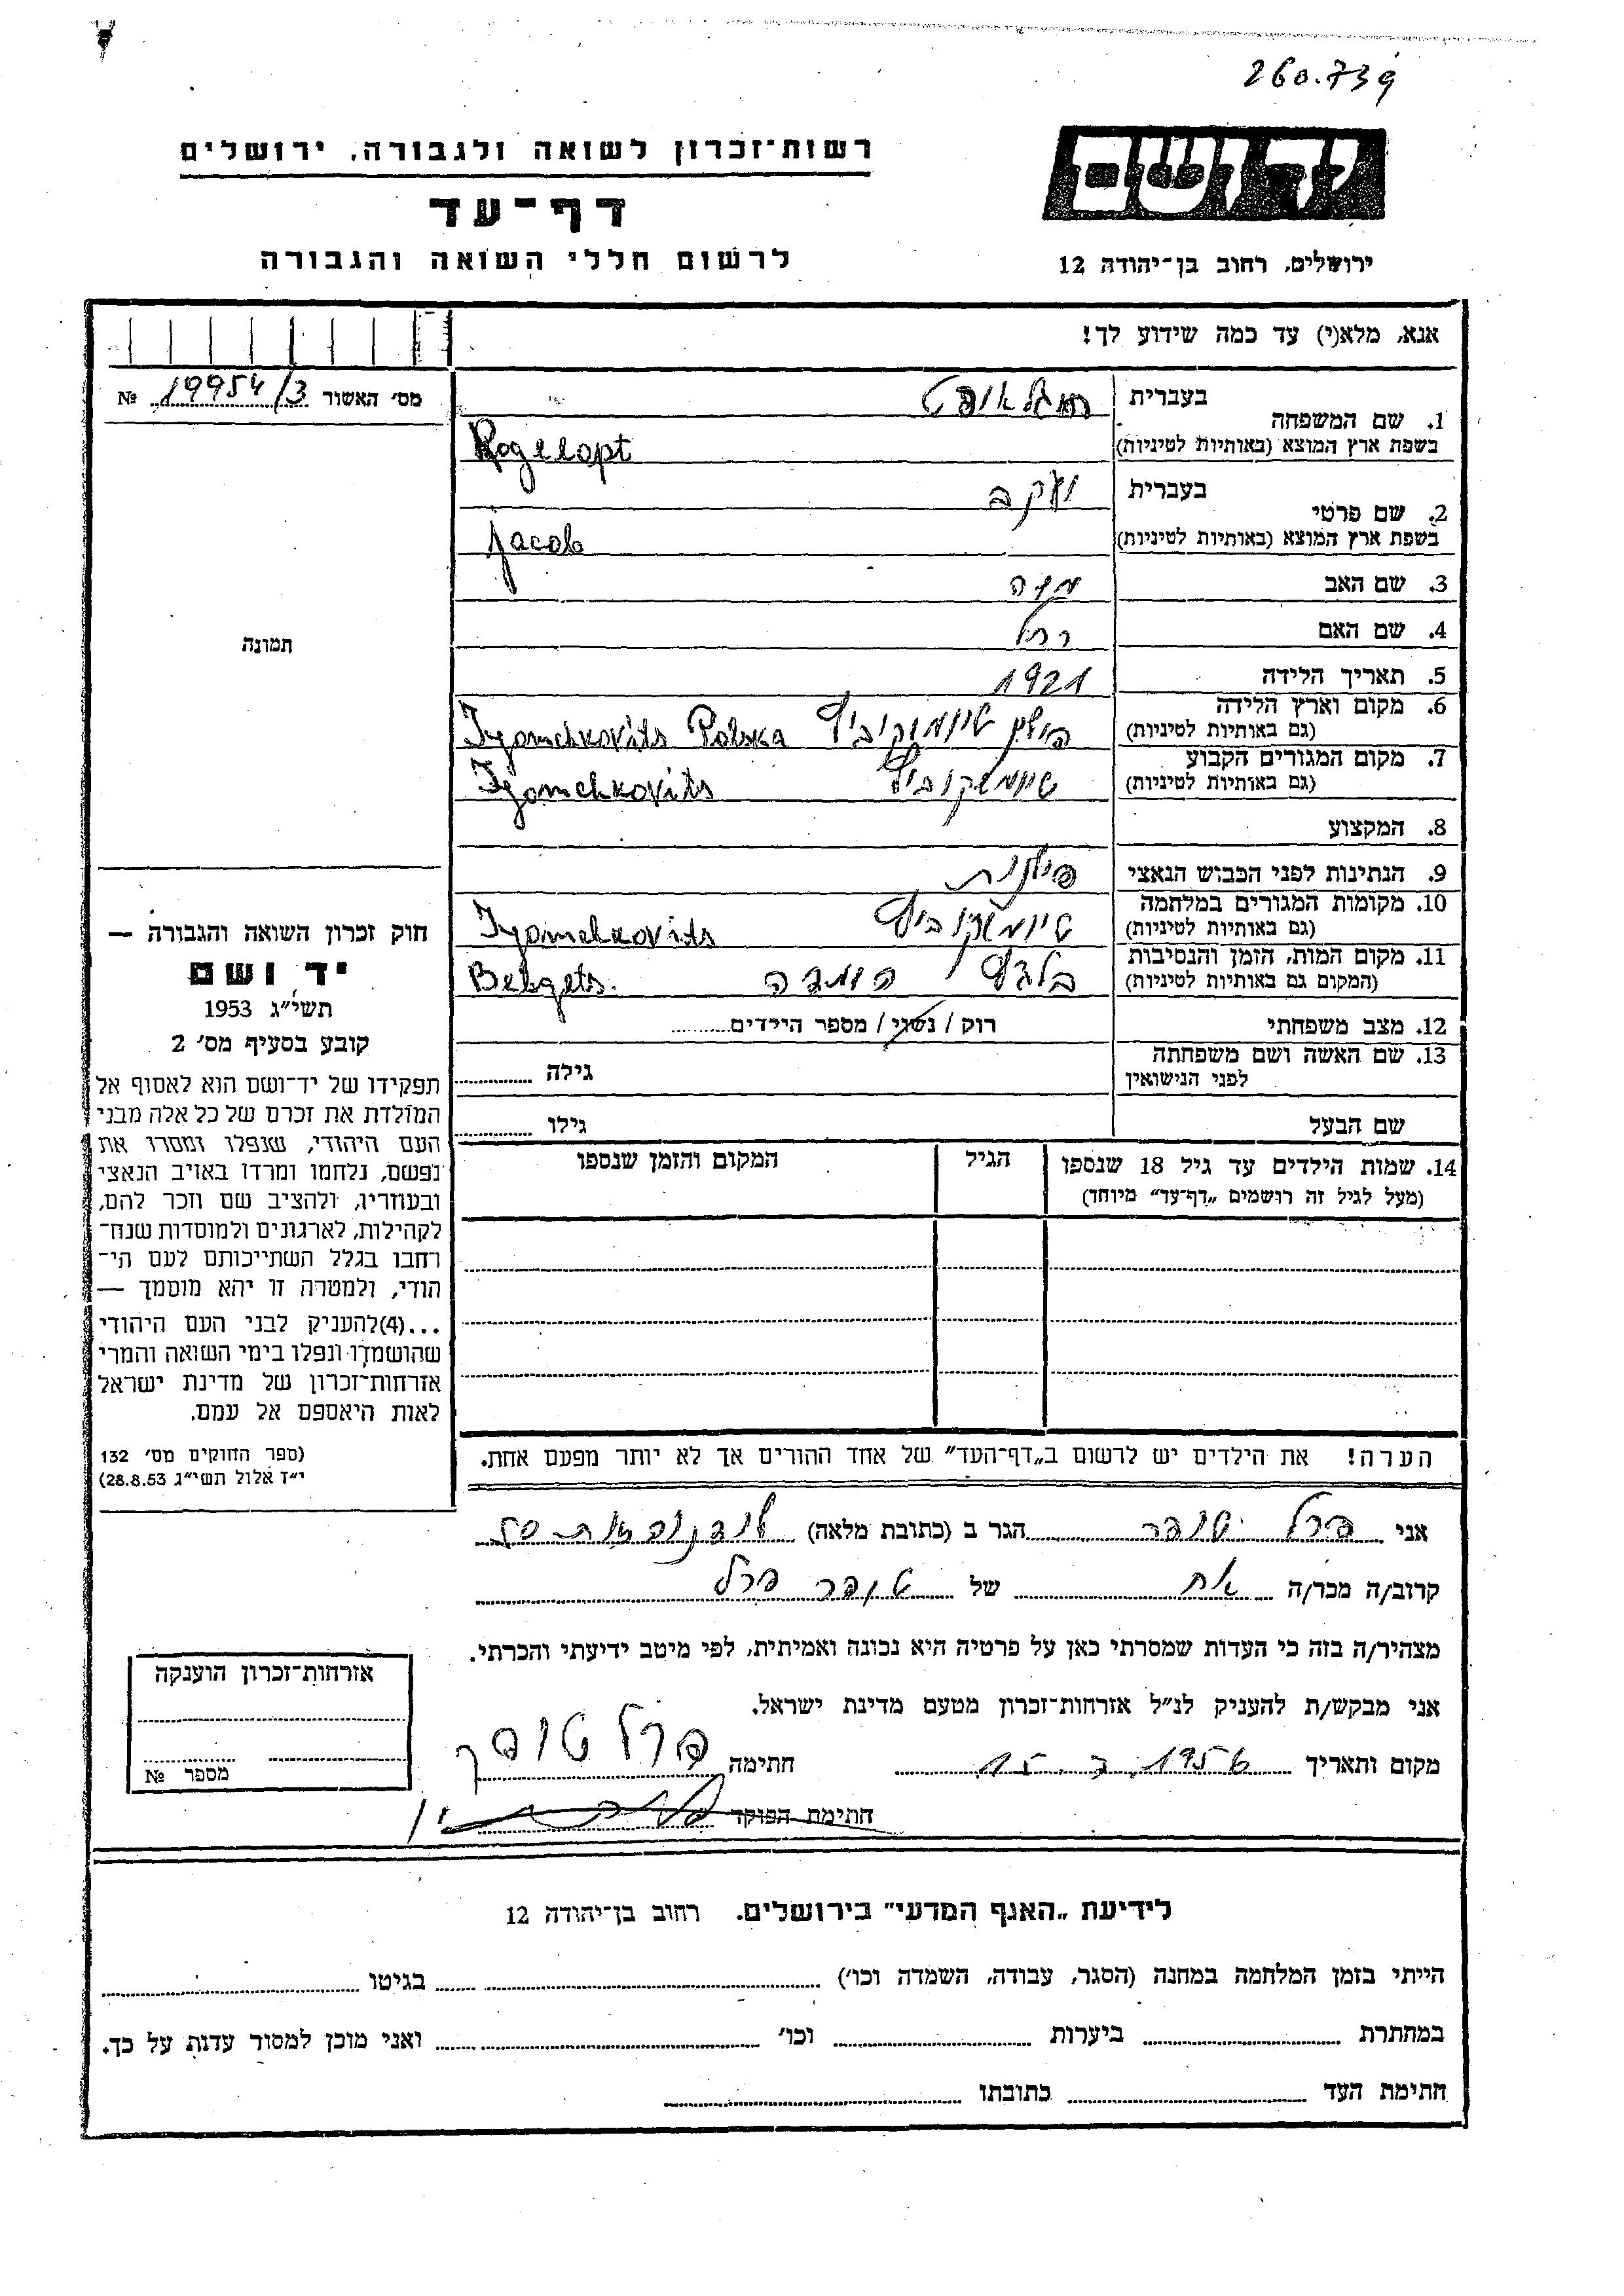 260.739
רשות־זכרון לשואה ולגבורה, ירושלים
יד ושם
דף־עד
לרשום חללי השואה והגבורה
ירושלים, רחוב בן־יהודה 12
אנא, מלא(י) עד כמה שידוע לך!
מס׳ האשור 19954/3 №
1. שם המשפחה
בעברית
בשפת ארץ המוצא (באותיות לטיניות) Rogelopt
2. שם פרטי
בעברית יעקב
בשפת ארץ המוצא (באותיות לטיניות) Jacob
3. שם האב משה
4. שם האם רחל
5. תאריך הלידה 1921
6. מקום וארץ הלידה
(גם באותיות לטיניות) פולין Polska
7. מקום המגורים הקבוע
(גם באותיות לטיניות)
8. המקצוע
9. הנתינות לפני הכבוש הנאצי פולנית
10. מקומות המגורים במלחמה
(גם באותיות לטיניות)
11. מקום המות, הזמן והנסיבות
(המקום גם באותיות לטיניות) Belzets.
12. מצב משפחתי רוק / נשוי / מספר הילדים
13. שם האשה ושם משפחתה
לפני הנישואין גילה
שם הבעל גילו
14. שמות הילדים עד גיל 18 שנספו
(מעל לגיל זה רושמים „דף־עד״ מיוחד)
הגיל
המקום והזמן שנספו
הערה! את הילדים יש לרשום ב„דף־העד״ של אחד ההורים אך לא יותר מפעם אחת.
תמונה
חוק זכרון השואה והגבורה —
יד ושם
תשי״ג 1953
קובע בסעיף מס׳ 2
תפקידו של יד־ושם הוא לאסוף אל
המולדת את זכרם של כל אלה מבני
העם היהודי, שנפלו ומסרו את
נפשם, נלחמו ומרדו באויב הנאצי
ובעוזריו, ולהציב שם וזכר להם,
לקהילות, לארגונים ולמוסדות שנח־
רחבו בגלל השתייכותם לעם הי־
הודי, ולמטרה זו יהא מוסמך —
...(4)להעניק לבני העם היהודי
שהושמדו ונפלו בימי השואה והמרי
אזרחות־זכרון של מדינת ישראל
לאות היאספם אל עמם.
(ספר החוקים מס׳ 132
י״ז אלול תשי״ג 28.8.53)
אני פרל הגר ב (כתובת מלאה)
קרוב/ה מכר/ה אח של פרל
מצהיר/ה בזה כי העדות שמסרתי כאן על פרטיה היא נכונה ואמיתית, לפי מיטב ידיעתי והכרתי.
אני מבקש/ת להעניק לנ״ל אזרחות־זכרון מטעם מדינת ישראל.
מקום ותאריך חתימה פרל
חתימת הפוקד
אזרחות־זכרון הוענקה
מספר №
לידיעת „האגף המדעי״ בירושלים. רחוב בן־יהודה 12
הייתי בזמן המלחמה במחנה (הסגר, עבודה, השמדה וכו׳) בגיטו
במחתרת ביערות וכו׳ ואני מוכן למסור עדות על כך.
חתימת העד כתובתו